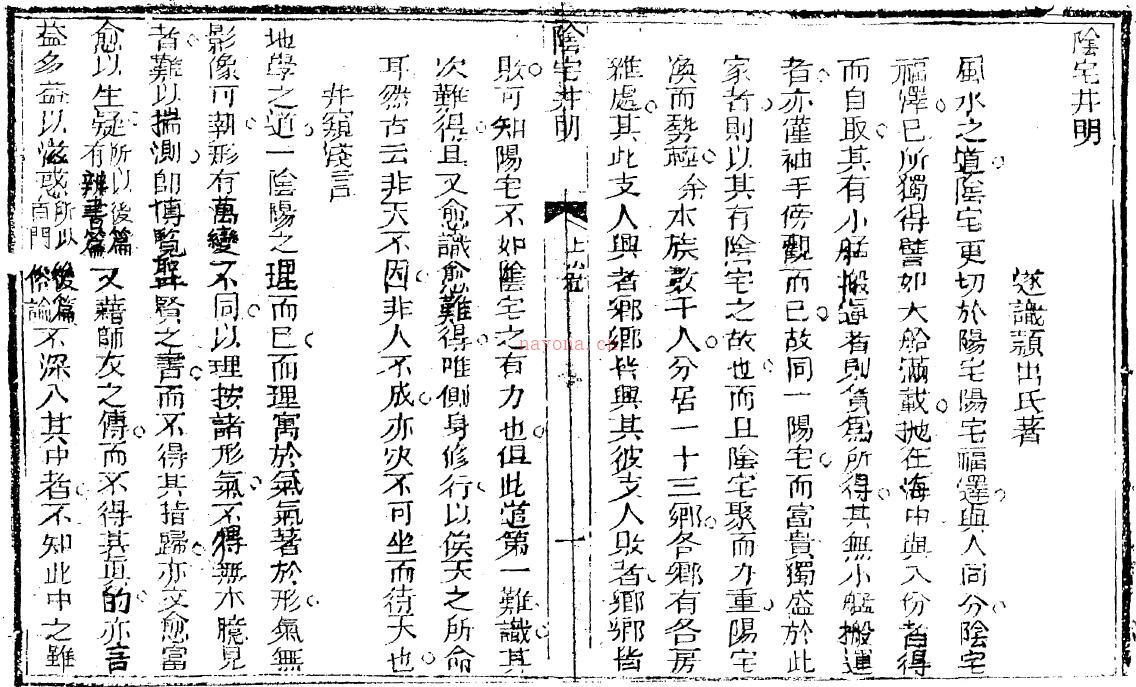 陰宅井明
遂識頴出氏著
風水之道陰宅更切於陽宅陽宅福澤與人同分陰宅
福澤已所獨得譬如大船滿載拋在海中與入份者得
而自取其有小艋搬運者則貨為所得其無小艋搬運
者亦僅袖手傍觀而已故同一陽宅而富貴獨盛於此
家者則以其有陰宅之故也而且陰宅聚而力重陽宅
渙而勢極余水族數千人分居一十三鄉各鄉有各房
雜處其此支人興者鄉鄉皆興其彼支人敗者鄉鄉皆
陰宅井明
上卷
一
敗可知陽宅不如陰宅之有力也但此道第一難識其
次難得且又愈識愈難得唯側身修行以俟天之所命
耳然古云非天不因非人不成亦決不可坐而待天也
井窺淺言
地學之道一陰陽之理而已而理寓於氣氣著於形氣無
影像可執形有萬變不同以理按諸形氣不得無水曉見
者難以揣測卽博覧聖賢之書而不得其指歸亦文愈富
愈以生疑所以後篇有辨書篇又藉師友之傳而不得其眞的亦言
益多益以滋惑所以後篇有門俗論不深入其中者不知此中之難
nayona.cn